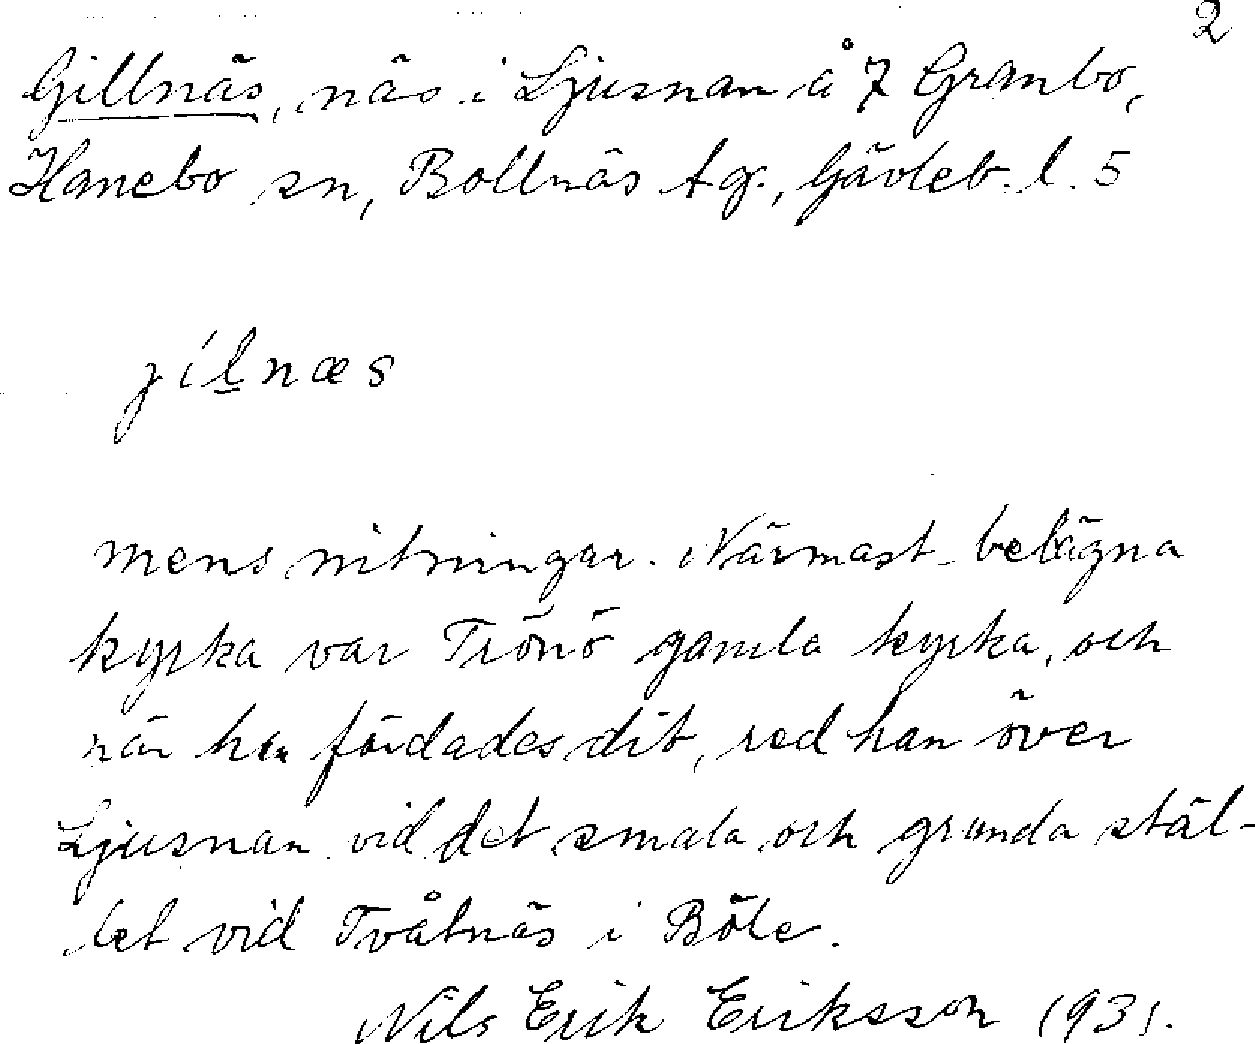 2
Gillnäs, näs i Ljusnan å 7 Granbo,
Hanebo sn, Bollnäs tg., Gävleb. l. 5
jílnæs
mens ritningar. Närmast belägna
kyrka var Trönö gamla kyrka, och
när han färdades dit, red han över
Ljusnan vid det smala och grunda stäl-
let vid Tvåtnäs i Böle.
Nils Erik Eriksson 1931.